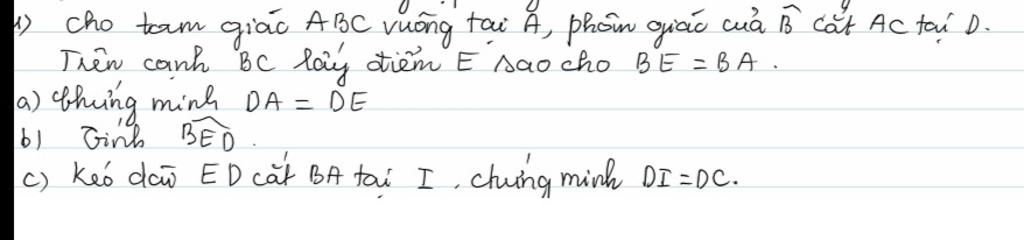 1) Cho tam giác ABC vuông tại A, phân giác của B̂ cắt AC tại D.
Trên cạnh BC lấy điểm E sao cho BE = BA.
a) Chứng minh DA = DE
b) Tính \widehat{BED}.
c) Kéo dài ED cắt BA tại I, chứng minh DI = DC.